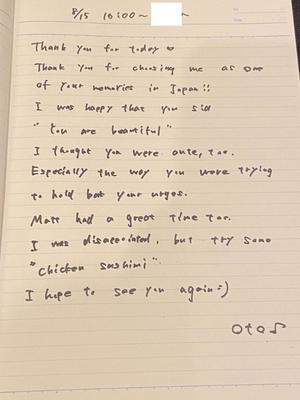 8/15 10:00~ ~
Thank you for today ♡
Thank you for choosing me as one
of your memories in Japan!!
I was happy that you sid
"You are beautiful"
I thought you were cute, too.
Especially the way you were trying
to hold bak your urges.
Matt had a great time too.
I was disappointed, but try some
"chicken sashimi".
I hope to see you again :)